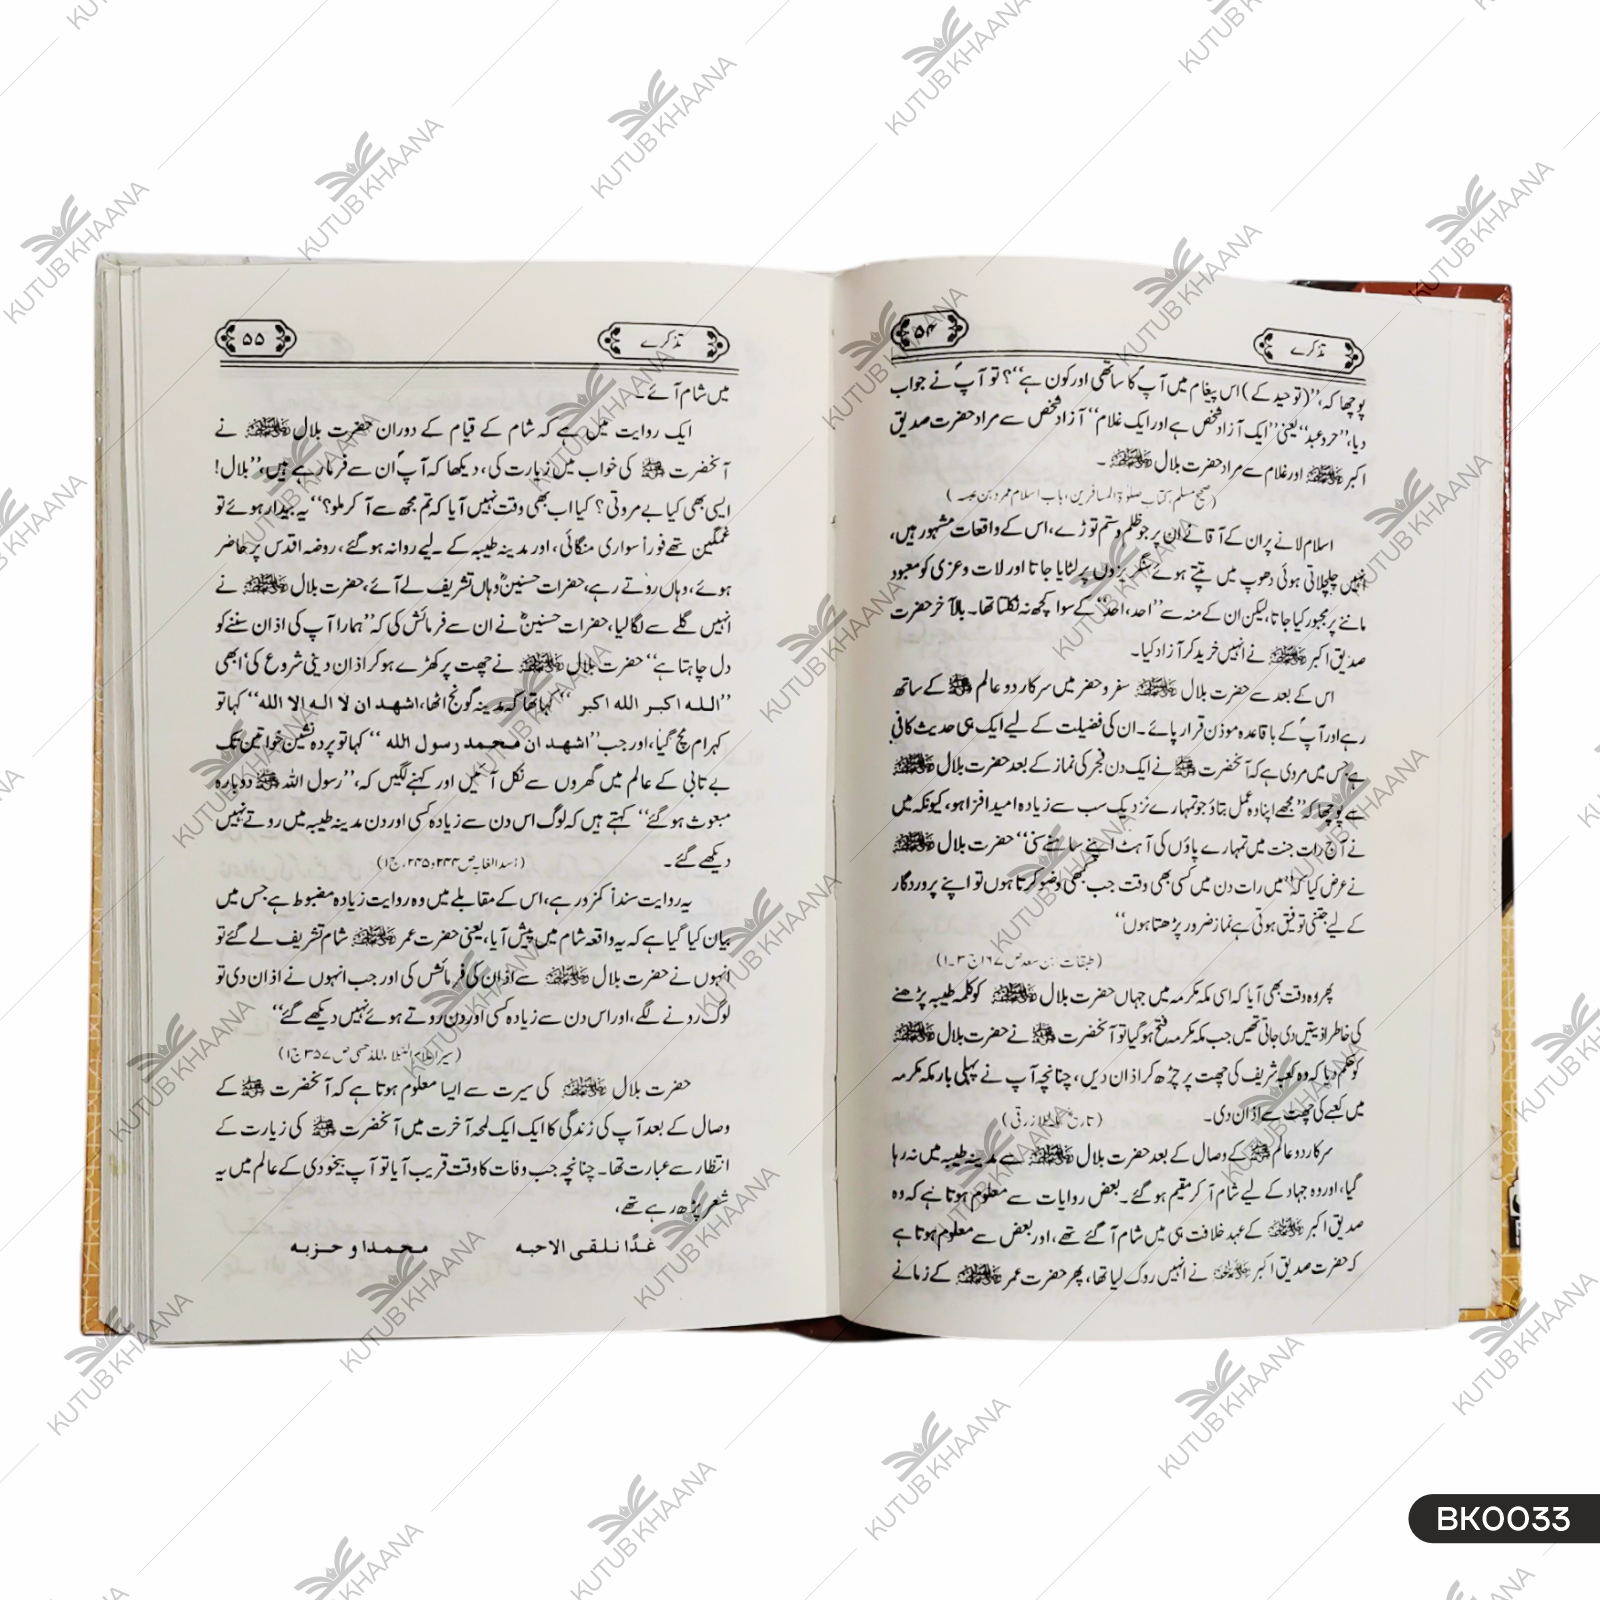 تذکرے
۵۴
پوچھا کہ، ”(توحید کے) اس پیغام میں آپؐ کا ساتھی اور کون ہے“؟ تو آپؐ نے جواب
دیا، ”حر و عبد“ یعنی ”ایک آزاد شخص ہے اور ایک غلام“ آزاد شخص سے مراد حضرت صدیق
اکبر رضی اللہ عنہ اور غلام سے مراد حضرت بلال رضی اللہ عنہ۔
(صحیح مسلم، کتاب صلوٰۃ المسافرین، باب اسلام عمرو بن عبسہ)
اسلام لانے پر ان کے آقا نے ان پر جو ظلم و ستم توڑے، اس کے واقعات مشہور ہیں،
انہیں چلچلاتی ہوئی دھوپ میں تپتے ہوئے سنگریزوں پر لٹایا جاتا اور لات و عزی کو معبود
ماننے پر مجبور کیا جاتا، لیکن ان کے منہ سے ”احد، احد“ کے سوا کچھ نہ نکلتا تھا۔ بالآخر حضرت
صدیق اکبر رضی اللہ عنہ نے انہیں خرید کر آزاد کیا۔
اس کے بعد سے حضرت بلال رضی اللہ عنہ سفر و حضر میں سرکار دو عالم ﷺ کے ساتھ
رہے اور آپؐ کے باقاعدہ موذن قرار پائے۔ ان کی فضیلت کے لیے ایک ہی حدیث کافی
ہے جس میں مروی ہے کہ آنحضرت ﷺ نے ایک دن فجر کی نماز کے بعد حضرت بلال رضی اللہ عنہ
سے پوچھا کہ ”مجھے اپنا وہ عمل بتاؤ جو تمہارے نزدیک سب سے زیادہ امید افزا ہو، کیونکہ میں
نے آج رات جنت میں تمہارے پاؤں کی آہٹ اپنے سامنے سنی“ حضرت بلال رضی اللہ عنہ
نے عرض کیا کہ ”میں رات دن میں کسی بھی وقت جب بھی وضو کرتا ہوں تو اپنے پروردگار
کے لیے جتنی توفیق ہوتی ہے نماز ضرور پڑھتا ہوں“
(طبقات ابن سعد ص ۱۶۷ ج ۳۔۱)
پھر وہ وقت بھی آیا کہ اسی مکہ مکرمہ میں جہاں حضرت بلال رضی اللہ عنہ کو کلمہ طیبہ پڑھنے
کی خاطر اذیتیں دی جاتی تھیں جب مکہ مکرمہ فتح ہو گیا تو آنحضرت ﷺ نے حضرت بلال رضی اللہ عنہ
کو حکم دیا کہ وہ کعبہ شریف کی چھت پر چڑھ کر اذان دیں، چنانچہ آپ نے پہلی بار مکہ مکرمہ
میں کعبے کی چھت سے اذان دی۔ (تاریخ مکہ للازرقی)
سرکار دو عالم ﷺ کے وصال کے بعد حضرت بلال رضی اللہ عنہ سے مدینہ طیبہ میں نہ رہا
گیا، اور وہ جہاد کے لیے شام آ کر مقیم ہو گئے۔ بعض روایات سے معلوم ہوتا ہے کہ وہ
صدیق اکبر رضی اللہ عنہ کے عہد خلافت ہی میں شام آ گئے تھے، اور بعض سے معلوم ہوتا ہے
کہ حضرت صدیق اکبر رضی اللہ عنہ نے انہیں روک لیا تھا، پھر حضرت عمر رضی اللہ عنہ کے زمانے
تذکرے
۵۵
میں شام آئے۔
ایک روایت میں ہے کہ شام کے قیام کے دوران حضرت بلال رضی اللہ عنہ نے
آنحضرت ﷺ کی خواب میں زیارت کی، دیکھا کہ آپؐ ان سے فرما رہے ہیں، ”بلال!
ایسی بھی کیا بے مروتی؟ کیا اب بھی وقت نہیں آیا کہ تم مجھ سے آ کر ملو؟“ یہ بیدار ہوئے تو
غمگین تھے فوراً سواری منگائی، اور مدینہ طیبہ کے لیے روانہ ہو گئے، روضہ اقدس پر حاضر
ہوئے، وہاں روتے رہے، حضرات حسنینؓ وہاں تشریف لے آئے، حضرت بلال رضی اللہ عنہ نے
انہیں گلے سے لگا لیا، حضرات حسنینؓ نے ان سے فرمائش کی کہ ”ہمارا آپ کی اذان سننے کو
دل چاہتا ہے“ حضرت بلال رضی اللہ عنہ نے چھت پر کھڑے ہو کر اذان دینی شروع کی، ابھی
”اللہ اکبر اللہ اکبر“ کہا تھا کہ مدینہ گونج اٹھا، اشھد ان لا الہ الا اللہ“ کہا تو
کہرام مچ گیا، اور جب ”اشھد ان محمد رسول اللہ“ کہا تو پردہ نشین خواتین تک
بے تابی کے عالم میں گھروں سے نکل آئیں اور کہنے لگیں کہ، ”رسول اللہ ﷺ دوبارہ
مبعوث ہو گئے“ کہتے ہیں کہ لوگ اس دن سے زیادہ کسی اور دن مدینہ طیبہ میں روتے نہیں
دیکھے گئے۔ (اسد الغابہ ص ۲۴۴ و ۲۴۵، ج ۱)
یہ روایت سنداً کمزور ہے، اس کے مقابلے میں وہ روایت زیادہ مضبوط ہے جس میں
بیان کیا گیا ہے کہ یہ واقعہ شام میں پیش آیا، یعنی حضرت عمر رضی اللہ عنہ شام تشریف لے گئے تو
انہوں نے حضرت بلال رضی اللہ عنہ سے اذان کی فرمائش کی اور جب انہوں نے اذان دی تو
لوگ رونے لگے، اور اس دن سے زیادہ کسی اور دن روتے ہوئے نہیں دیکھے گئے“
(سیر اعلام النبلاء للذھبی ص ۳۵۷ ج ۱)
حضرت بلال رضی اللہ عنہ کی سیرت سے ایسا معلوم ہوتا ہے کہ آنحضرت ﷺ کے
وصال کے بعد آپ کی زندگی کا ایک ایک لمحہ آخرت میں آنحضرت ﷺ کی زیارت کے
انتظار سے عبارت تھا۔ چنانچہ جب وفات کا وقت قریب آیا تو آپ بیخودی کے عالم میں یہ
شعر پڑھ رہے تھے،
غدًا نلقی الاحبہ محمدا و حزبہ
BK0033
KUTUB KHAANA